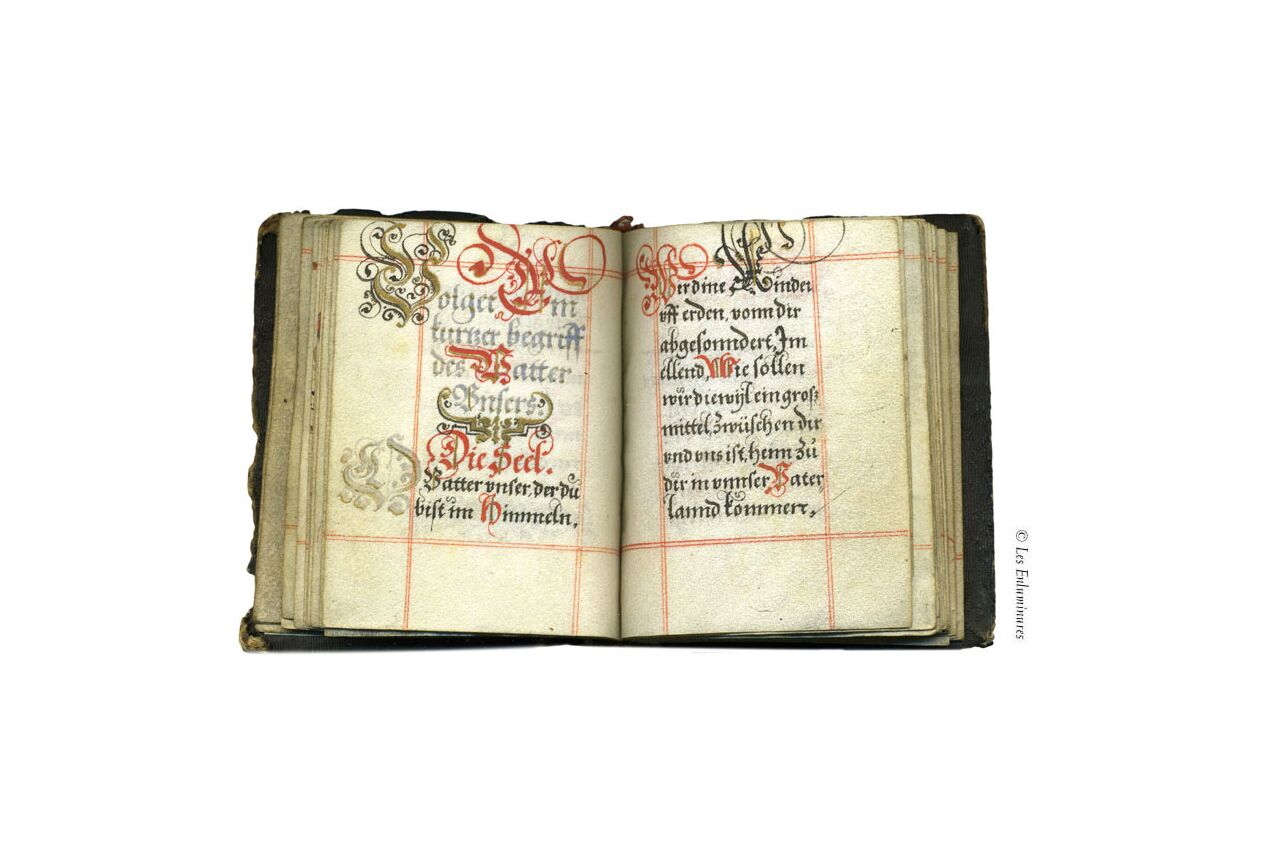 Volget Ein
kurtzer begriff
des Vatter
Vnsers.
Die Seel.
Vatter vnser, der du
bist im Himmeln,
Wer dine Kinder
vff erden, vonn dir
abgesonndert, Jm
ellend, Wie sollen
wir diewyl ein groß
mittel, zwüschen dir
vnd vns ist, heim zů
dir in vnnser Vater,
lannd kommen,
© Les Enluminures